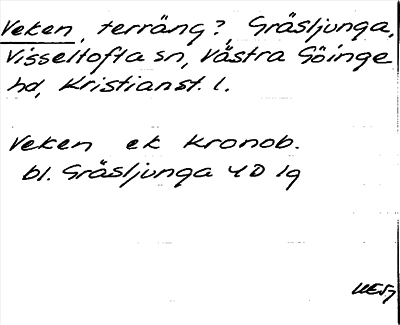 Veken, terräng?, Gräsljunga,
Visseltofta sn, Västra Göinge
hd, Kristianst. l.
Veken ek Kronob.
bl. Gräsljunga 4D 1g